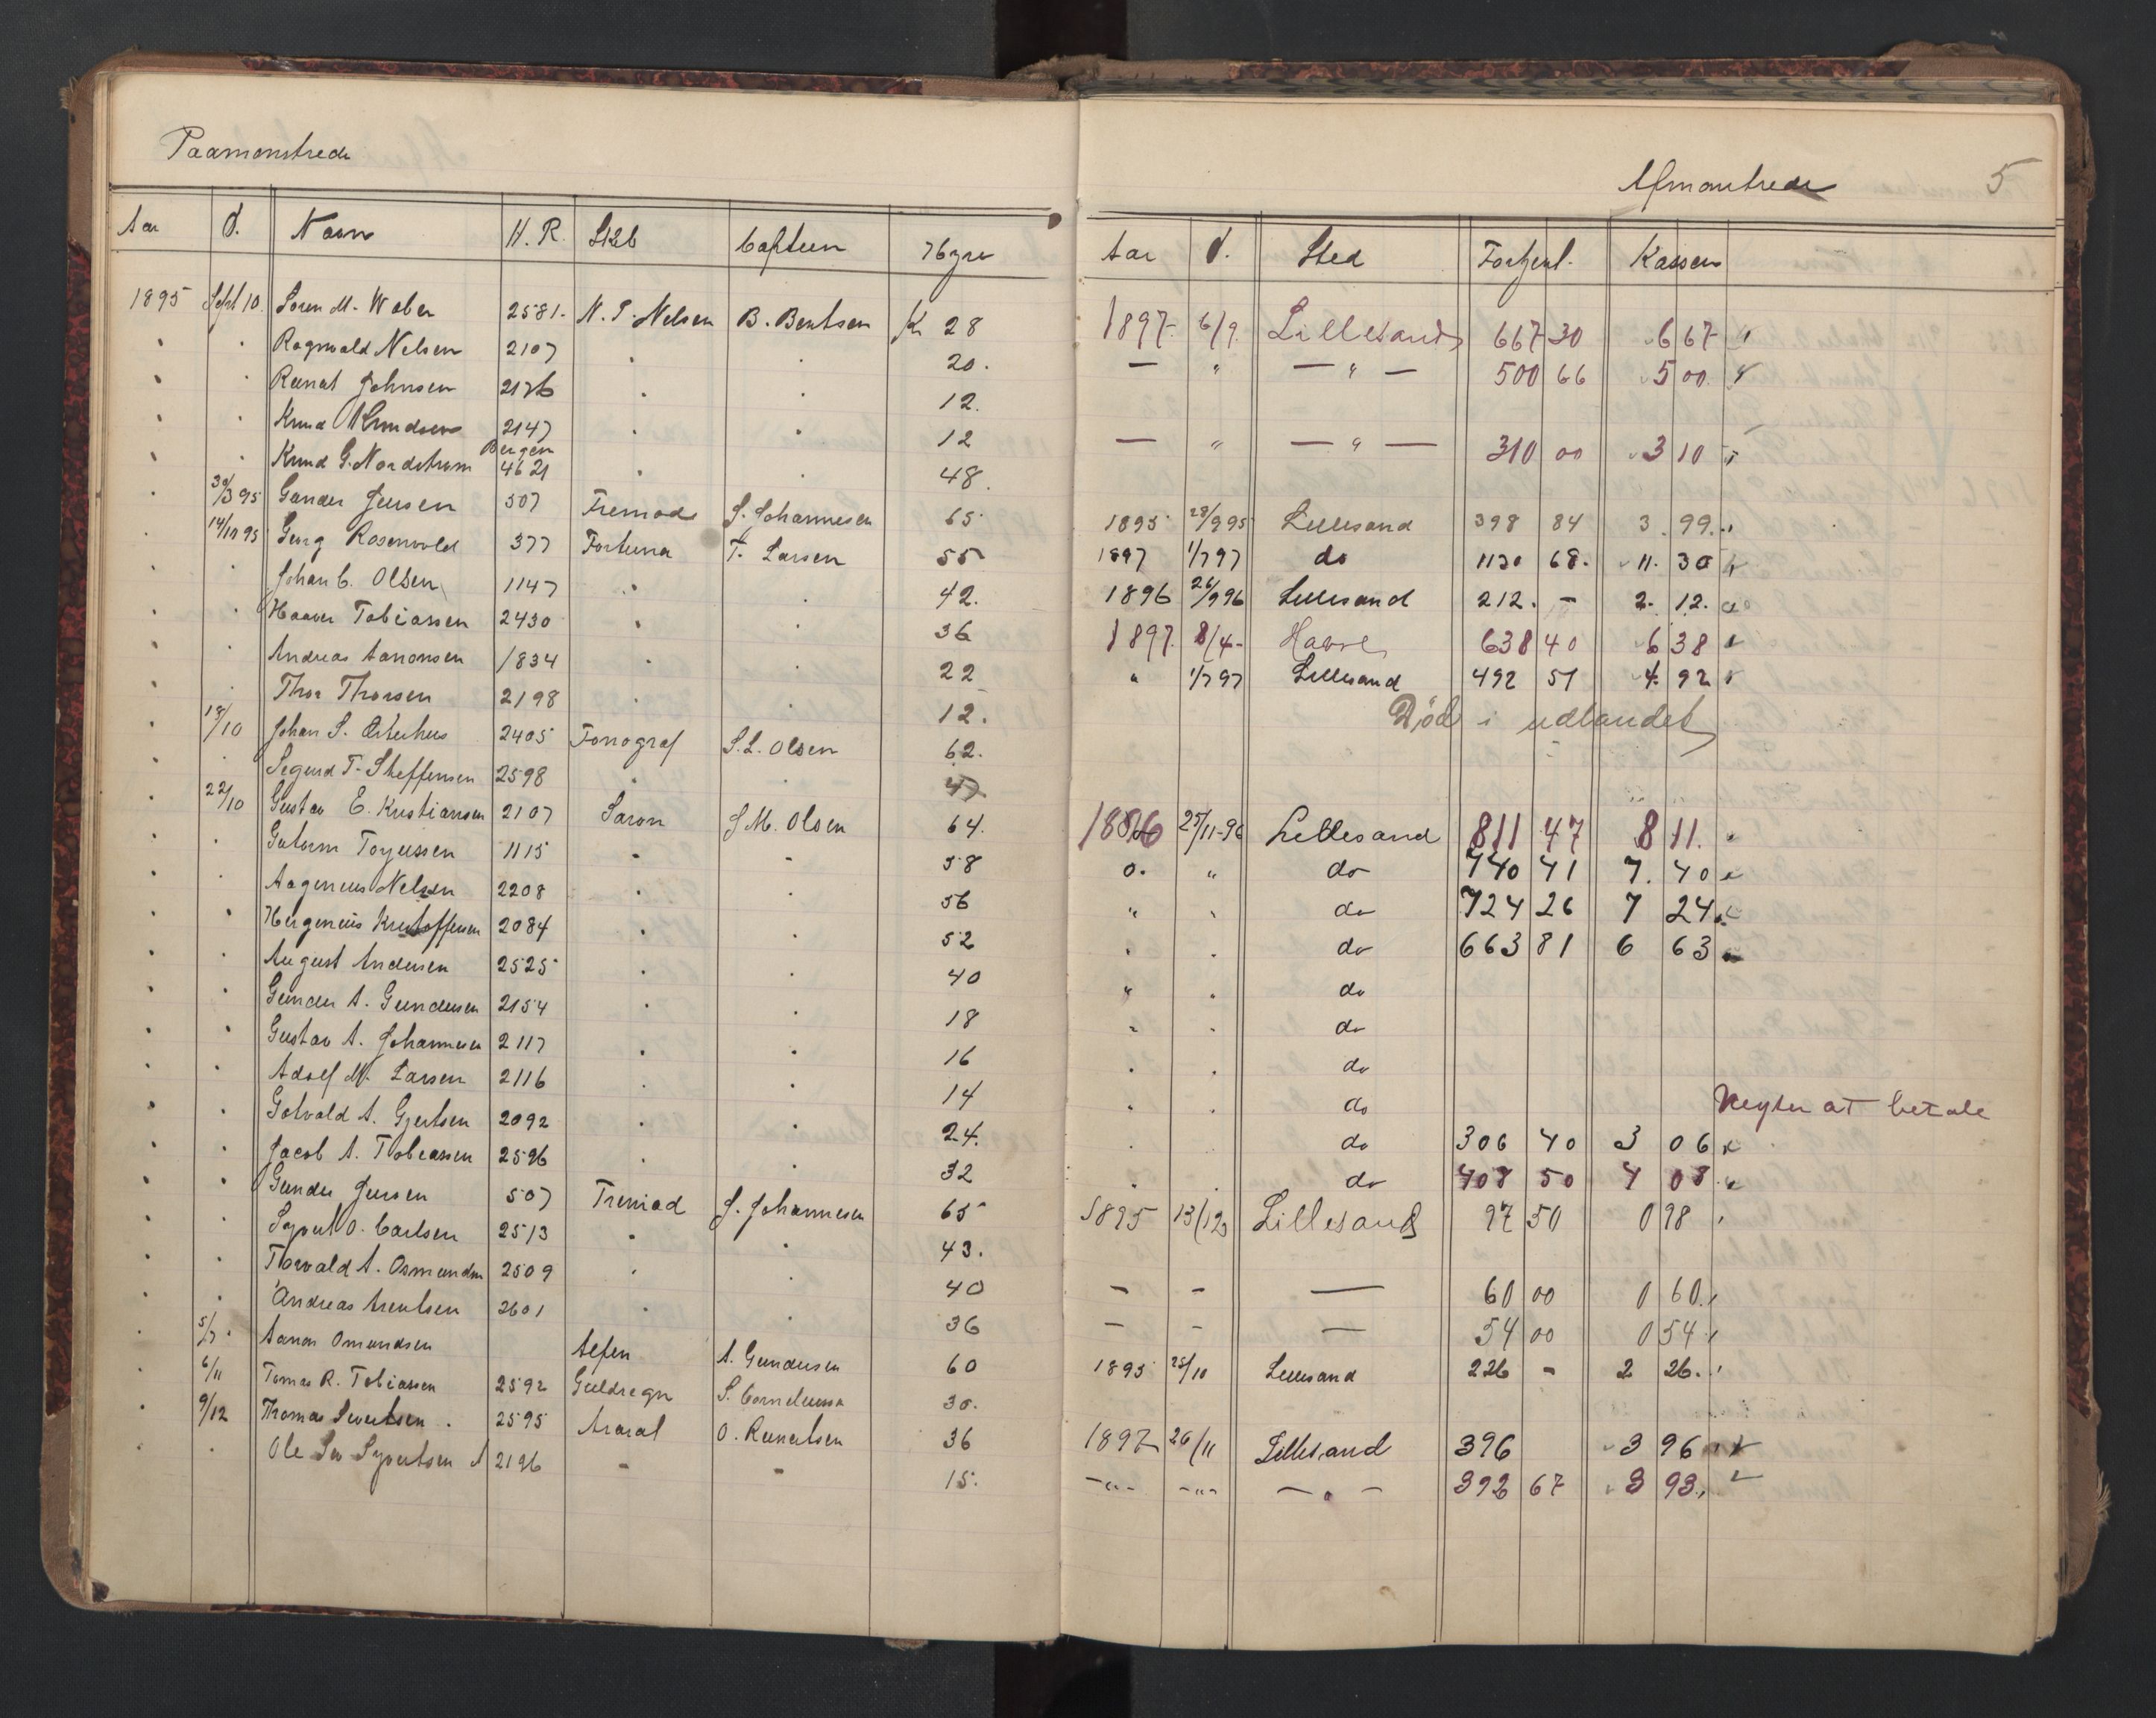 Paamonstrede
Aar d. Navn H. R. Skib Captein Hyre
1895 Sept 10. Søren M. Weber 2581. N. P. Nelsen B. Bentsen Kr 28
" " Ragnvald Nelsen 2107 " " 20.
" " Reinert Johnsen 2176 " " 12.
" " Knud Knudsen 2147 " " 12
" " Knud G. Nordstrøm Bergen 4621 " " 48.
" 30/3 95 Gunder Jensen 507 Fremad J. Johannesen 65
" 14/10 95 Georg Rosenvold 377 Fortuna T. Larsen 55
" " Johan C. Olsen 1147 " " 42.
" " Haaver Tobiassen 2430 " " 36
" " Andreas Aanonsen 1834 " " 22
" " Thor Thorsen 2198 " " 12.
" 18/10 Johan S. Østerhus 2405 Fonograf S. L. Olsen 62.
" " Segurd T. Steffensen 2598 " " 47
" 22/10 Gustav E. Kristiansen 2107 Saron J M. Olsen 64.
" " Gutorm Torjussen 1115 " " 58
" " Aagenæus Nelsen 2208 " " 56
" " Hergenæus Kristoffersen 2084 " " 52
" " August Andersen 2525 " " 40
" " Gunder A. Gundersen 2154 " " 18
" " Gustav A. Johannesen 2117 " " 16
" " Adolf M. Larsen 2116 " " 14
" " Gotvald A. Gjertsen 2092 " " 24.
" " Jacob A. Tobiassen 2596 " " 32
" " Gunder Jensen 507 Fremad J. Johannesen 65
" " Syvert O. Carlsen 2513 " " 43.
" " Torvald A. Osmundsen 2509 " " 40
" " Andreas Arentsen 2601 " " 36
" 5/7 " Aanon Omundsen Alfen A. Gundersen 60
" 6/11 Tomas R. Tobiassen 2592 Guldregn S. Corneliussen 30.
" 9/12 Thomas Sivertsen. 2595 Ararat O. Reinertsen 36
" " Ole Syvertsen 2196 " " 15.
Afmonstrede 5
Aar d. Sted Fortjent. Kassen
1897. 6/9. Lillesand 667 30 6 67
— " — " — 500 66 5 00.
— " — " — 310 00 3 10
1895 28/9 95 Lillesand 398 84 3. 99.
1897 1/7 97 do 1130 68. 11. 30
1896 26/9 96 Lillesand 212. - 2. 12.
1897. 8/4- Havre 638 40 6 38
" 1/7 97 Lillesand 492 51 4. 92
Død i udlandet
1896 25/11-96 Lillesand 811 47 8 11.
o. " do 740 41 7. 40
" " do 724 26 7 24
" " do 663 81 6 63
" " do
" " do
" " do
" " do Negter at betale
" " do 306 40 3 06
" " do 408 50 4 08
1895 13/12 Lillesand 97 50 0 98
— — — 60 00 0 60.
— — — 54 00 0 54
1895 25/10 Lillesand 226 - 2 26.
1897 26/11 Lillesand 396 3 96
-"- -"- — " — 392 67 3 93.